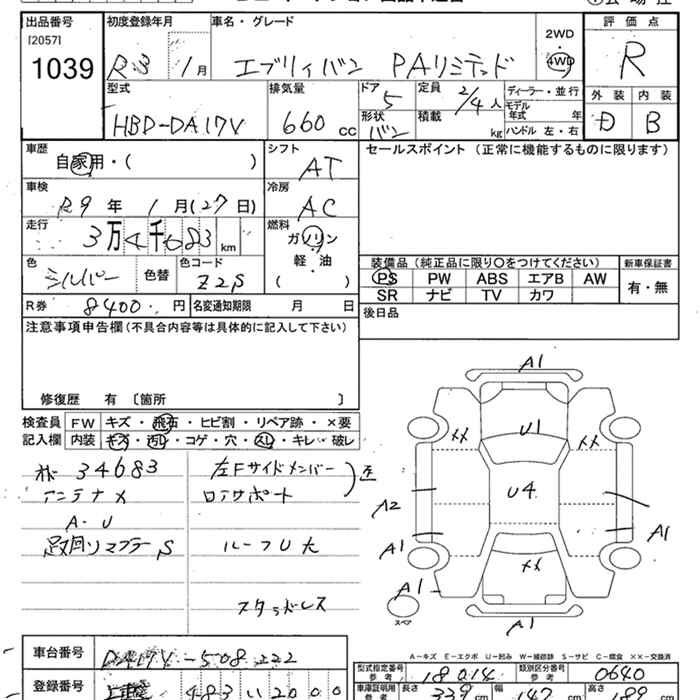 出品番号
[2057]
1039
初度登録年月
R3 1月
車名・グレード
エブリィバン PAリミテッド
2WD
4WD
評価点
R
外装 内装
D B
型式
HBD-DA17V
排気量
660 cc
ドア
5
形状
バン
定員
2/4人
積載
kg
ディーラー・並行
モデル年式 年
ハンドル 左・右
車歴
自家用・( )
シフト
AT
セールスポイント (正常に機能するものに限ります)
車検
R9年 1月(27日)
冷房
AC
走行
3万4千683 km
燃料
ガソリン
軽・油
( )
色
シルバー
色替
色コード
Z2S
装備品 (純正品に限り○をつけてください)
新車保証書
PS PW ABS エアB AW
SR ナビ TV カワ
有・無
R券 8400円
名変通知期限 月 日
後日品
注意事項申告欄(不具合内容等は具体的に記入して下さい)
修復歴 有 〔箇所 〕
検査員記入欄
FW キズ・飛石・ヒビ割・リペア跡・×要
内装 キズ・汚れ・コゲ・穴・スレ・キレ・破レ
34683
アンテナ×
A・U
足回リマフラーS
左Fサイドメンバー
コアサポート
ルーフU大
スタッドレス
A1
U1
×× ××
U4
A2
A1
A1
××
A1
スペア
A1
A-キズ E-エクボ U-凹み W-補修跡 S-サビ C-腐食 ××-交換済
車台番号
DA17V-508222
登録番号
483 い 2000
型式指定番号 参考
18014
類別区分番号 参考
0640
車庫証明用 参考
長さ 339 cm
幅 147 cm
高さ 189 cm